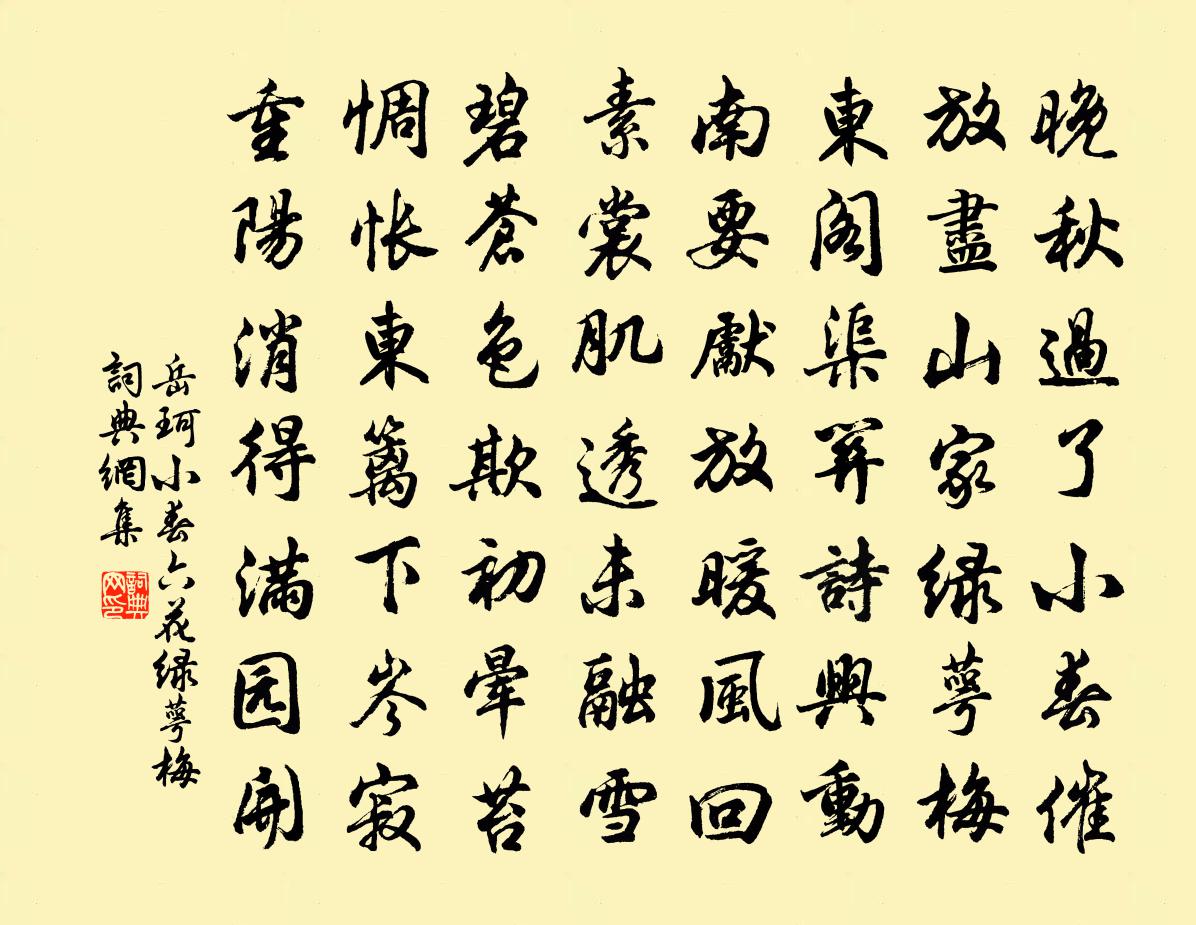 晚秋過了小春催
放盡山家绿萼梅
東阁渠笄詩興動
南要獻放暖風回
素裳肌透未融雪
碧苍色欺初暈苔
惆怅東篱下岑寂
重陽消得满园開
岳珂小春六花绿萼梅
詞典網集
詞典网印